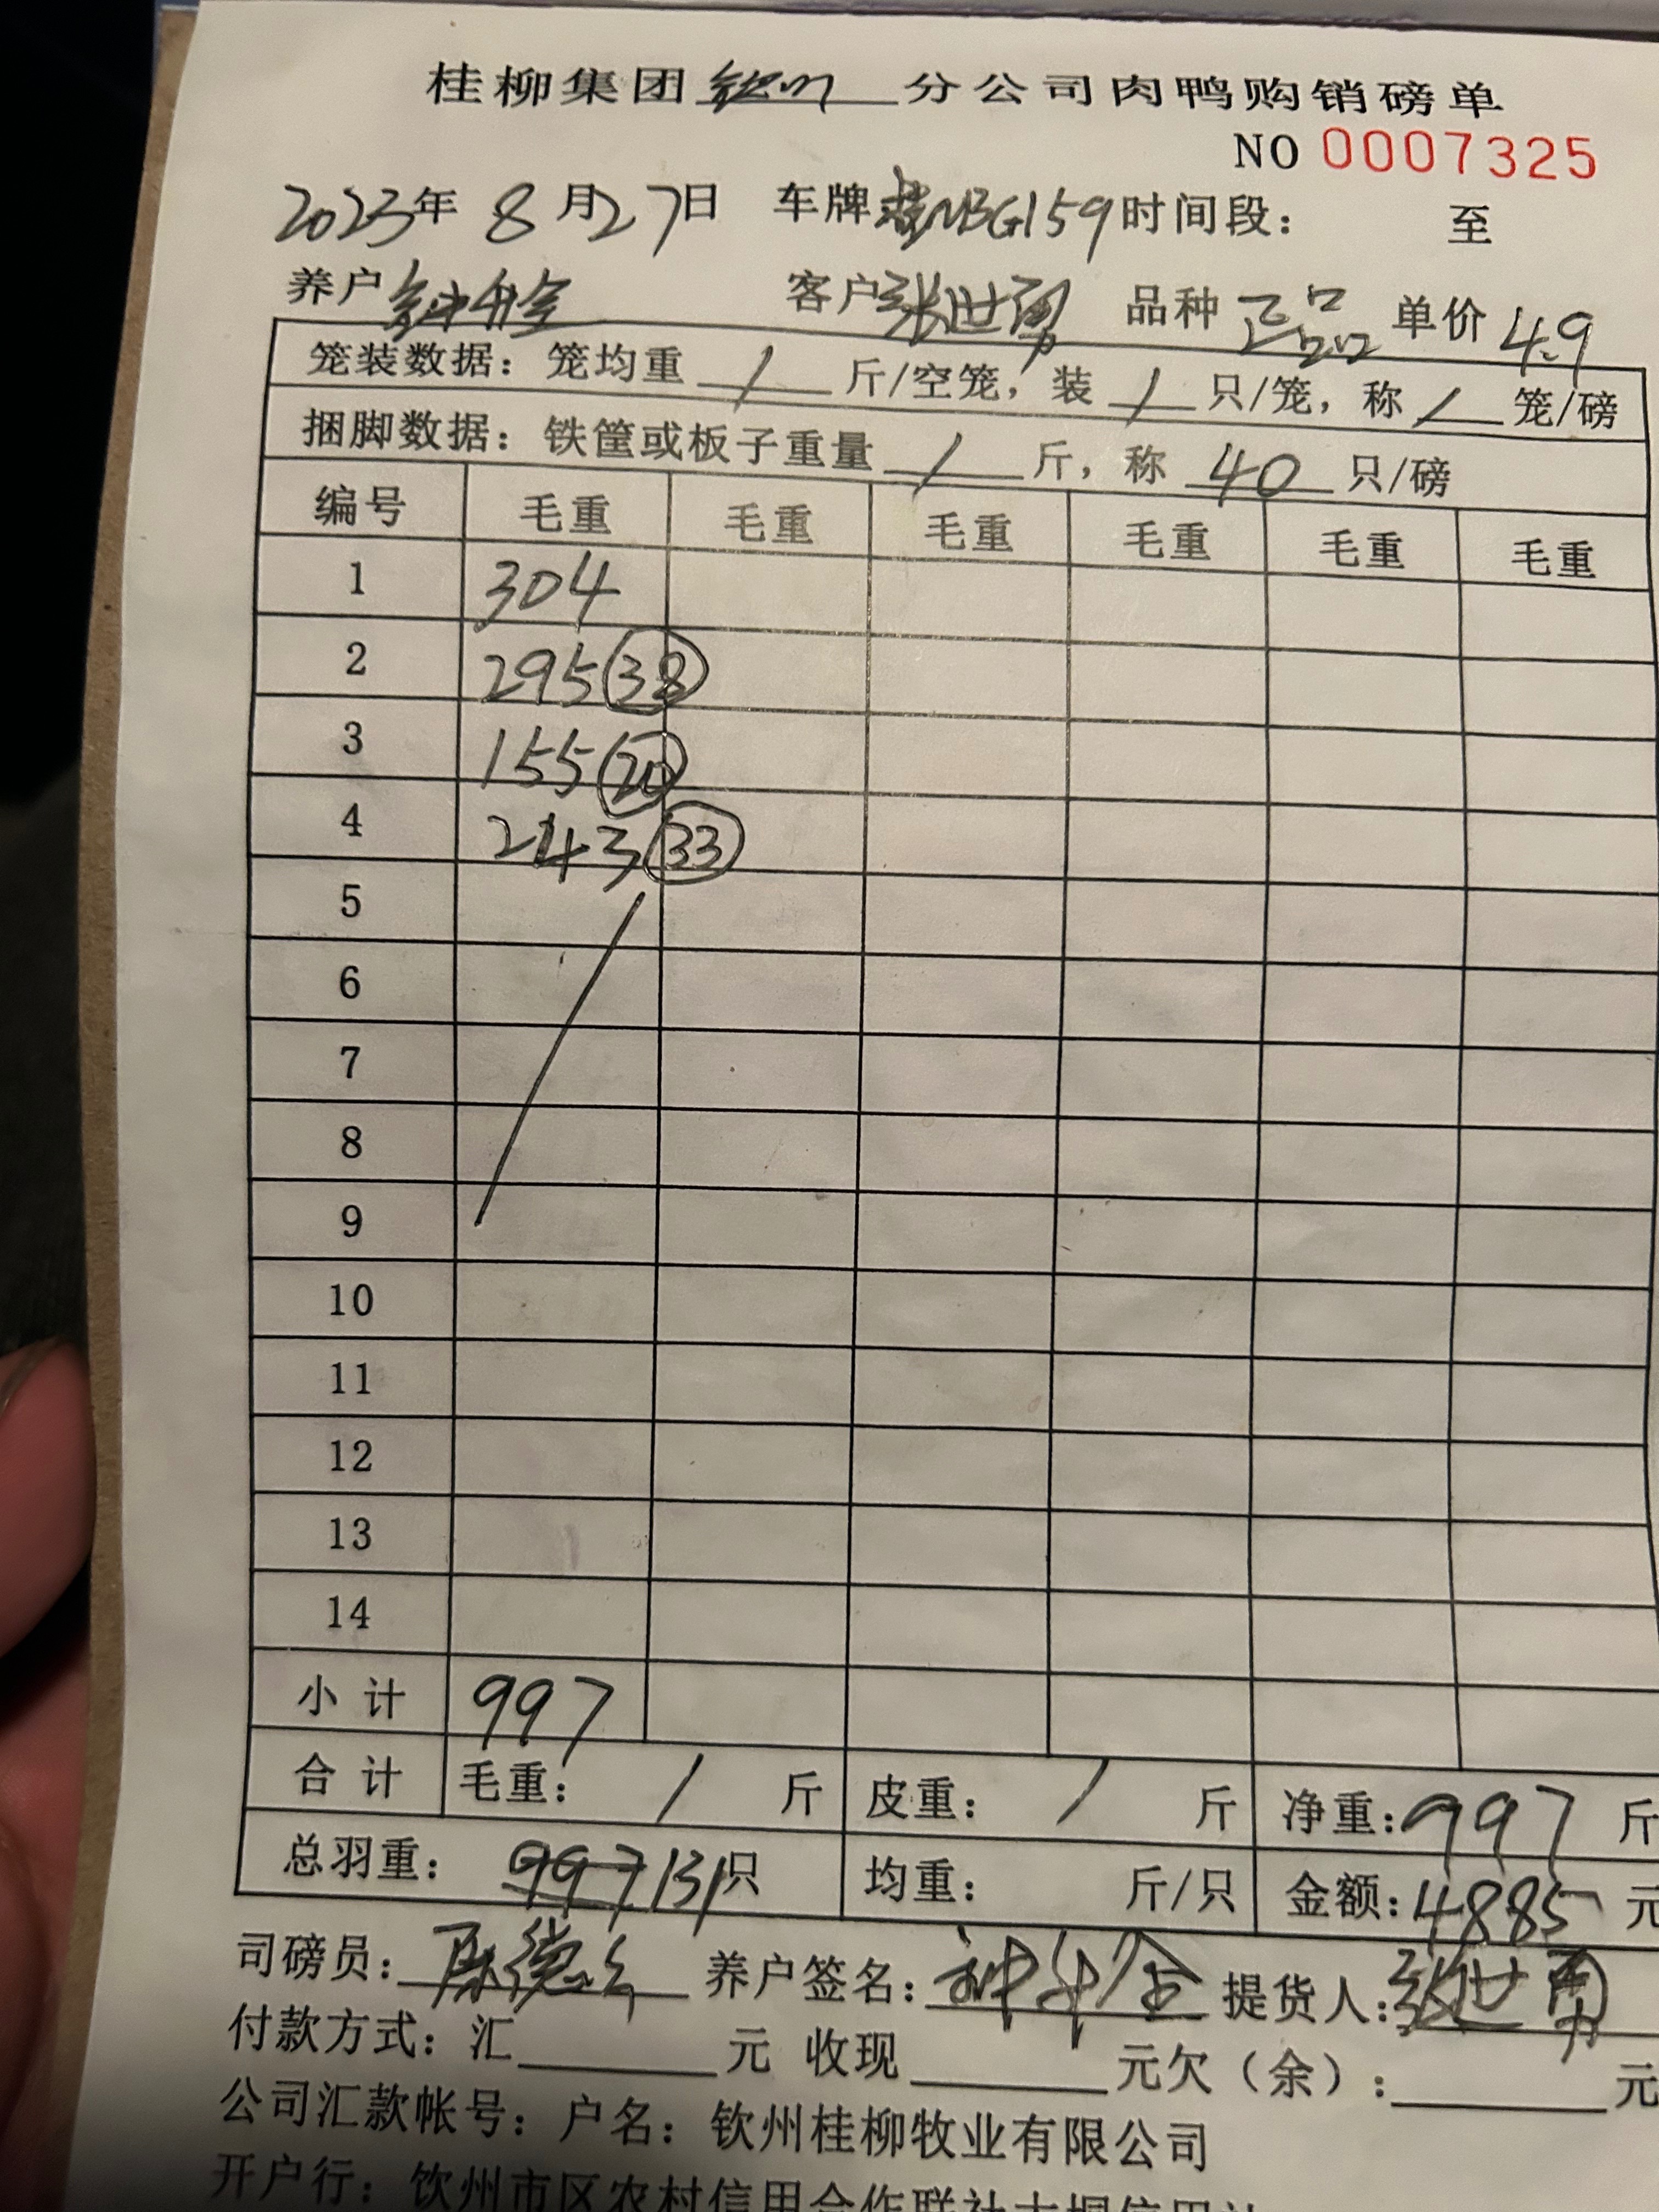 桂柳集团钦州分公司肉鸭购销磅单
NO 0007325
2023年 8月27日 车牌桂NBG159时间段: 至
养户 客户张世勇 品种 正品 单价 4.9
笼装数据: 笼均重 / 斤/空笼, 装 / 只/笼, 称 / 笼/磅
捆脚数据: 铁筐或板子重量 / 斤, 称 40 只/磅
编号 毛重 毛重 毛重 毛重 毛重 毛重
1 304
2 295 38
3 155 20
4 243 33
5
6
7
8
9
10
11
12
13
14
小计 997
合计 毛重: / 斤 皮重: / 斤 净重: 997 斤
总羽重: 997 131只 均重: 斤/只 金额: 4885 元
司磅员: 养户签名: 提货人: 张世勇
付款方式: 汇 元 收现 元欠(余): 元
公司汇款帐号: 户名: 钦州桂柳牧业有限公司
开户行: 钦州市区农村信用合作联社